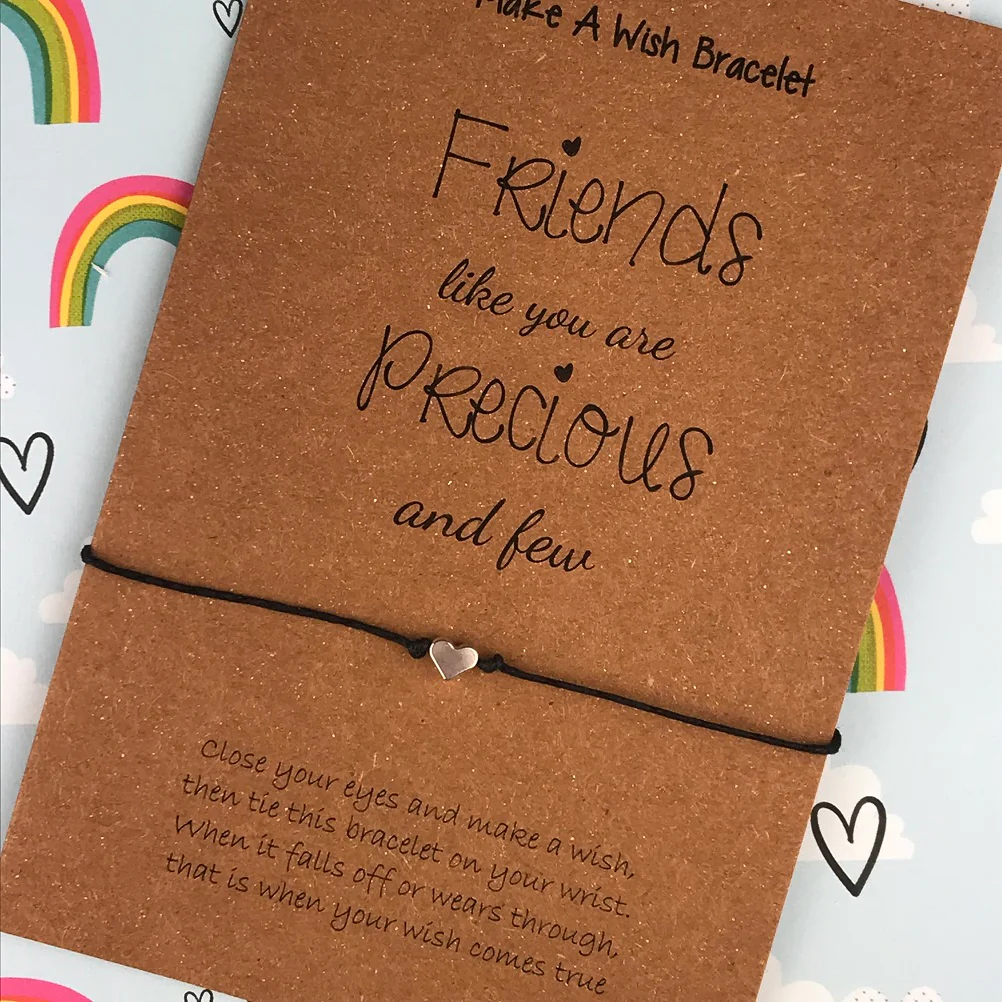 Make A Wish Bracelet
Friends
like you are
precious
and few
Close your eyes and make a wish,
then tie this bracelet on your wrist.
When it falls off or wears through,
that is when your wish comes true